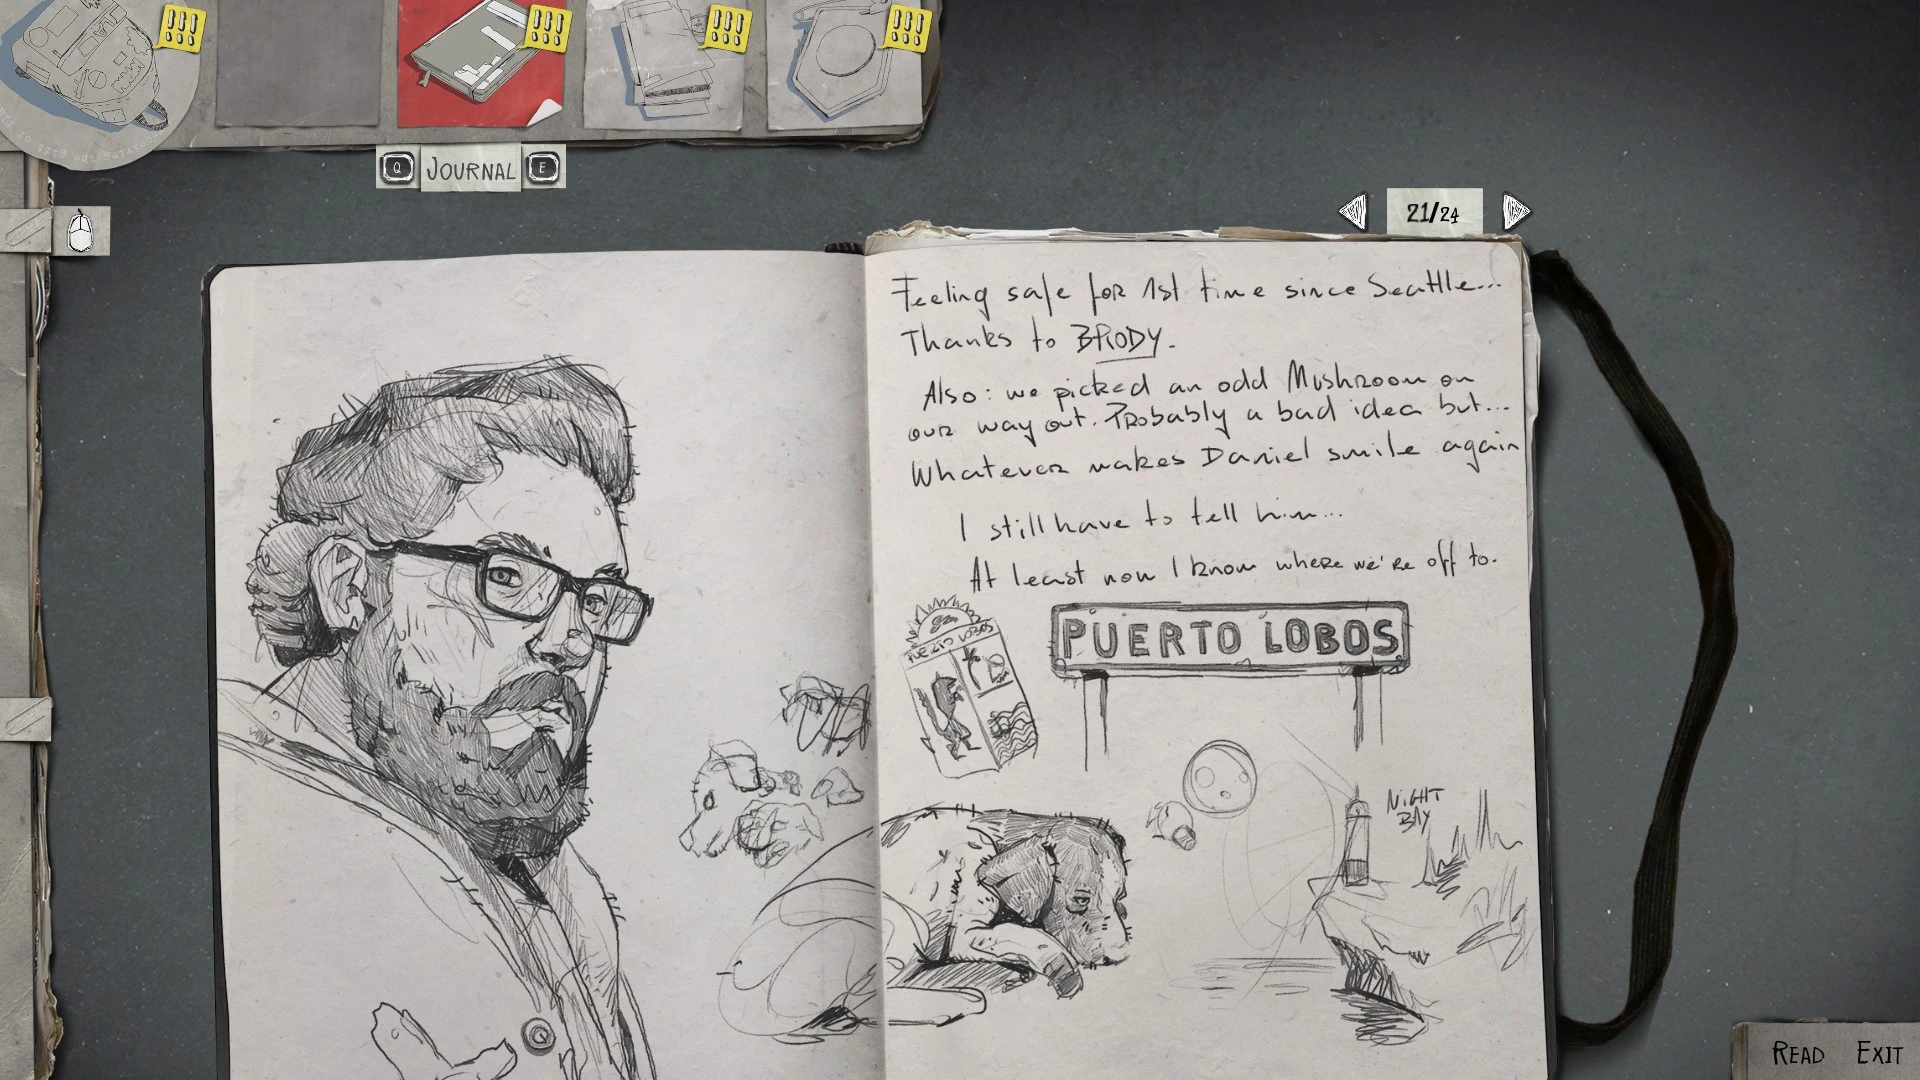 Q JOURNAL E
21/24
Feeling safe for 1st time since Seattle...
Thanks to BRODY.
Also: we picked an odd Mushroom on
our way out. Probably a bad idea but...
Whatever makes Daniel smile again
I still have to tell him...
At least now I know where we're off to.
PUERTO LOBOS
PUERTO LOBOS
NIGHT
BAY
READ EXIT